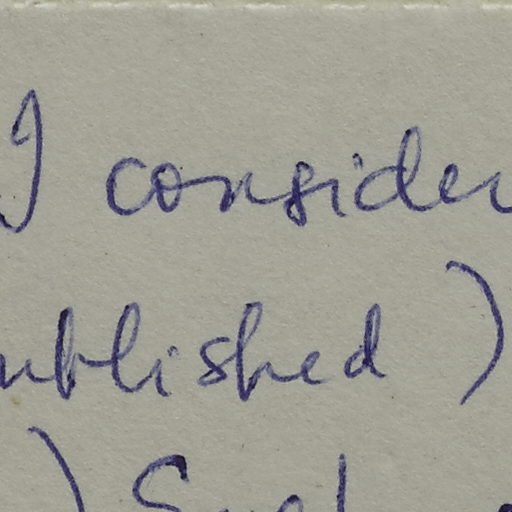 I consider
ublished )
)